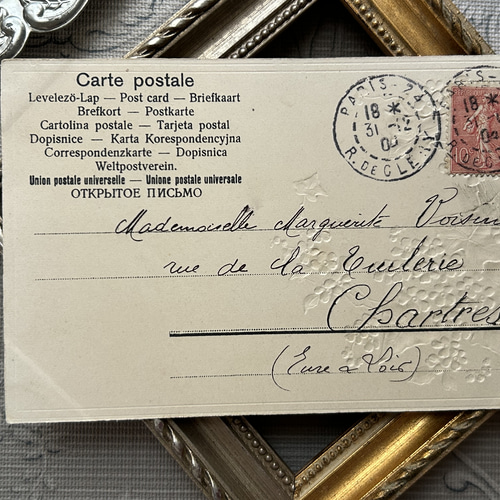 Carte postale
Levelező-Lap — Post card — Briefkaart
Brefkort — Postkarte
Cartolina postale — Tarjeta postal
Dopisnice — Karta Korespondencyjna
Correspondenzkarte — Dopisnica
Weltpostverein.
Union postale universelle — Unione postale universale
ОТКРЫТОЕ ПИСЬМО
PARIS-24
18 *
31-12
R. DE CLERY
18 *
10
Mademoiselle Marguerite Voisin
rue de la Tuilerie
Chartres
(Eure & Loir)